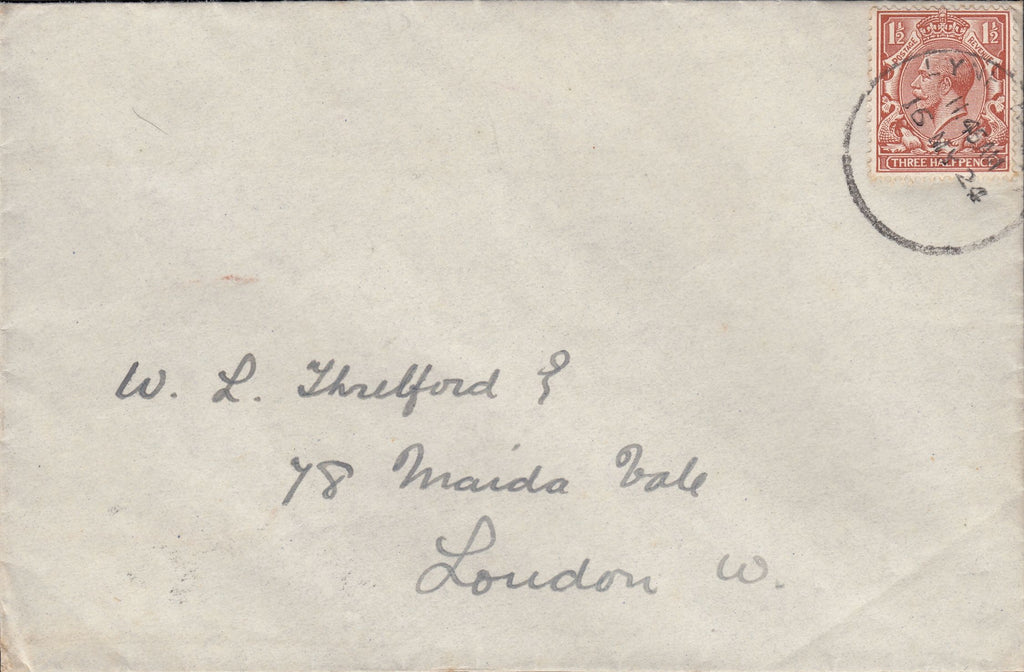 1½ 1½
POSTAGE REVENUE
THREE HALFPENCE
11 45 AM
16 MY 24
W. L. Threlford
78 Maida Vale
London W.